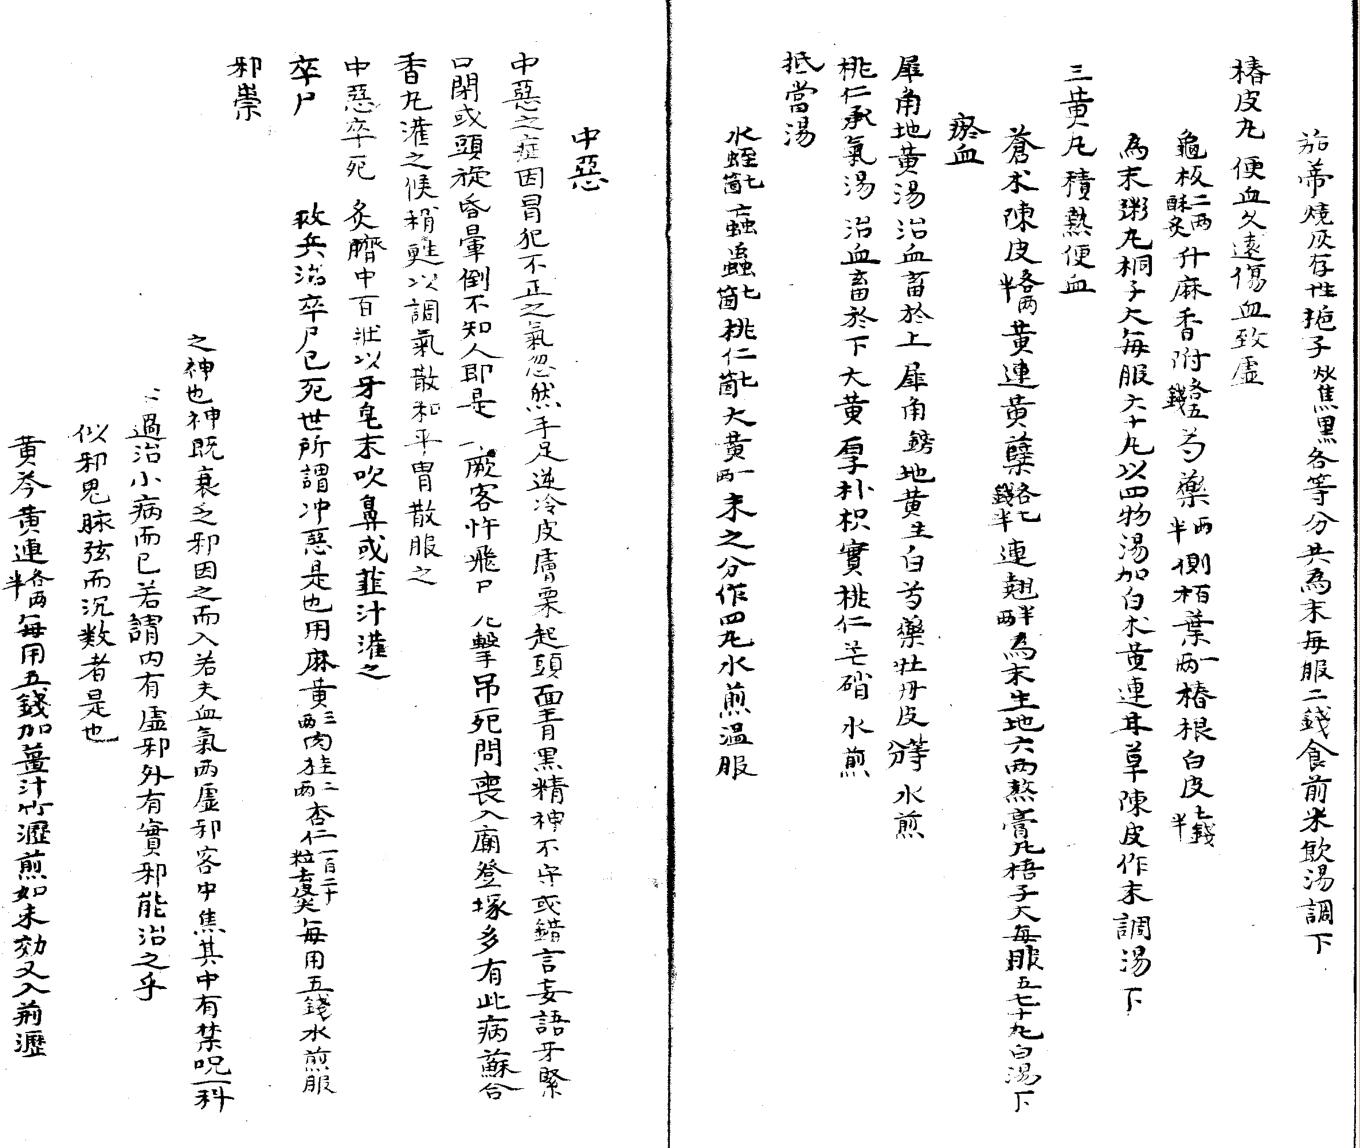 茄蒂燒灰存性梔子炒焦黑各等分共為末每服二錢食前米飲湯調下
椿皮丸 便血久遠傷血致虛
龜板二兩酥炙升麻香附各五錢芍藥兩半側栢葉一兩椿根白皮七錢半
為末粥丸桐子大每服六十丸以四物湯加白朮黃連甘草陳皮作末調湯下
三黃丸 積熱便血
蒼朮陳皮各兩半黃連黃蘗各七錢半連翹半兩為末生地六兩熬膏丸梧子大每服五七十丸白湯下
瘀血
犀角地黃湯 治血畜於上 犀角鎊地黃生白芍藥牡丹皮等分 水煎
桃仁承氣湯 治血畜於下 大黃厚朴枳實桃仁芒硝 水煎
抵當湯
水蛭七箇䖟蟲七箇桃仁七箇大黃一兩 末之分作四丸水煎溫服
中惡
中惡之症因冒犯不正之氣忽然手足逆冷皮膚粟起頭面青黑精神不守或錯言妄語牙緊
口閉或頭旋昏暈倒不知人即是 厥客忤飛尸 擊吊死問喪入廟登塚多有此病蘇合
香丸灌之候稍甦以調氣散和平胃散服之
中惡卒死 炙臍中百壯以牙皂末吹鼻或韮汁灌之
卒尸 救兵治卒尸已死世所謂冲惡是也用麻黃三兩肉桂二兩杏仁一百二十粒去皮尖每用五錢水煎服
邪祟
之神也神既衰乏邪因之而入若夫血氣兩虛邪客中焦其中有禁呪一科
過治小病而已若謂內有虛邪外有實邪能治之乎
似邪鬼脉弦而沉数者是也
黃芩黃連各兩半每用五錢加薑汁竹瀝煎如未効又入荊瀝